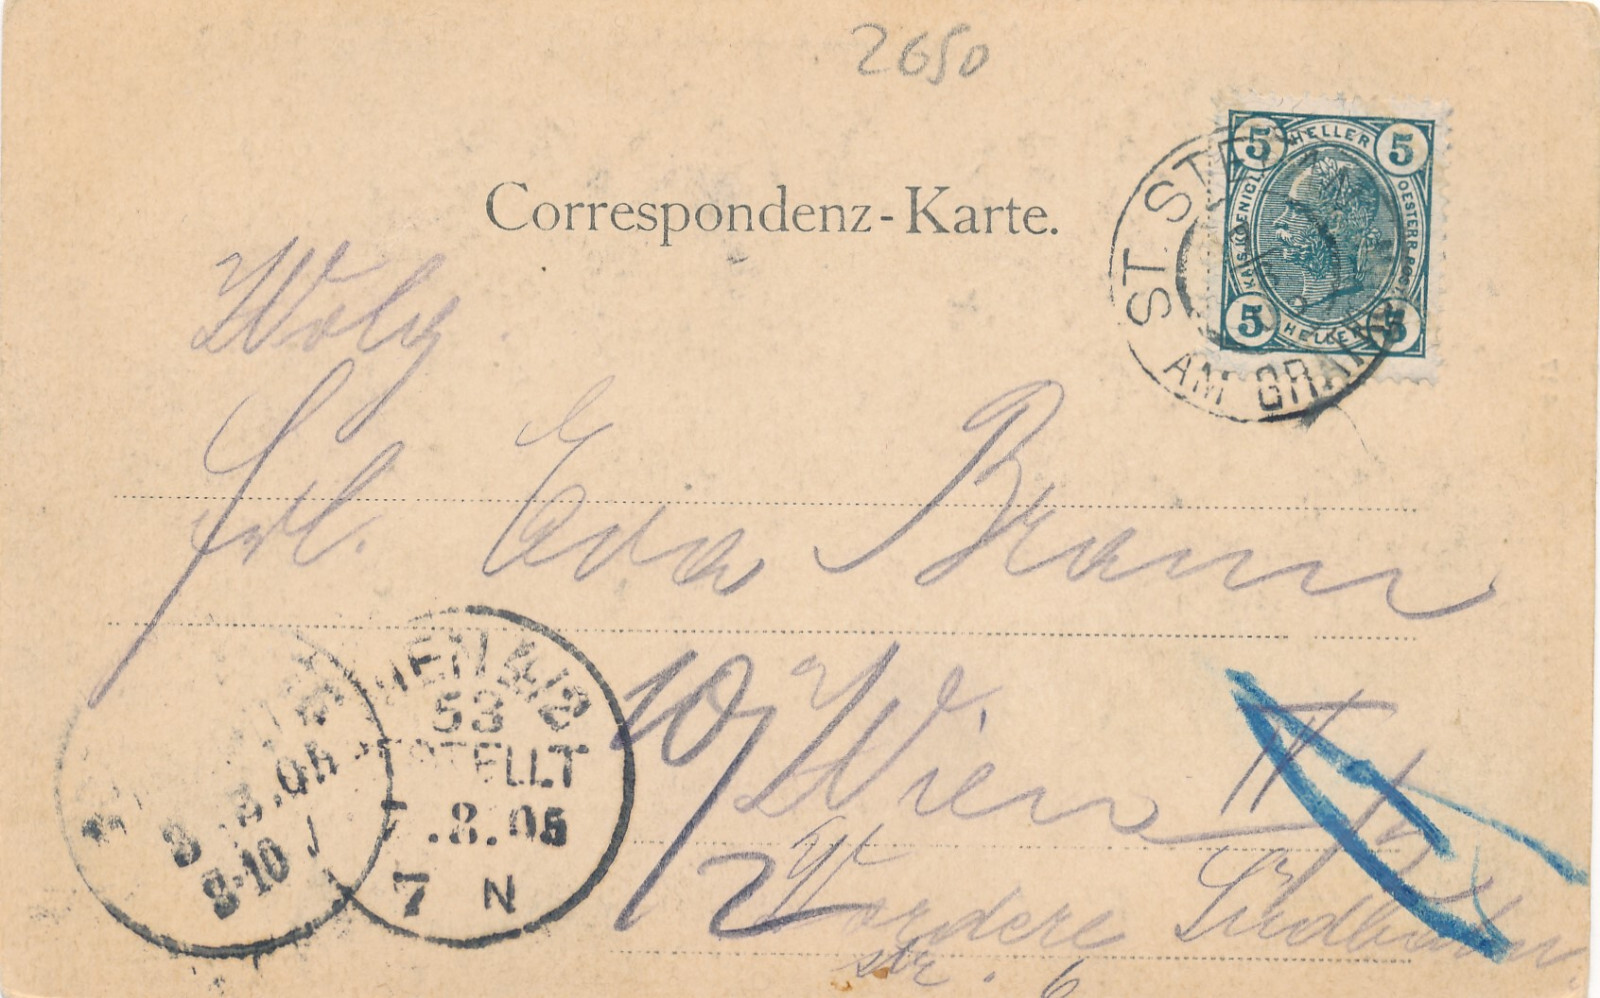 2650
Correspondenz-Karte.
5 HELLER 5
KAIS. KOENIGL. OESTERR. POST.
5 HELLER 5
ST. STEFAN
AM GRATK
Wolg
Frl. Eva Braun
10/ Wien IV/
12 Vordere Südbahn
str. 6
WIEN 4/2
53
BESTELLT
7.8.05
7 N
8.05
8-10